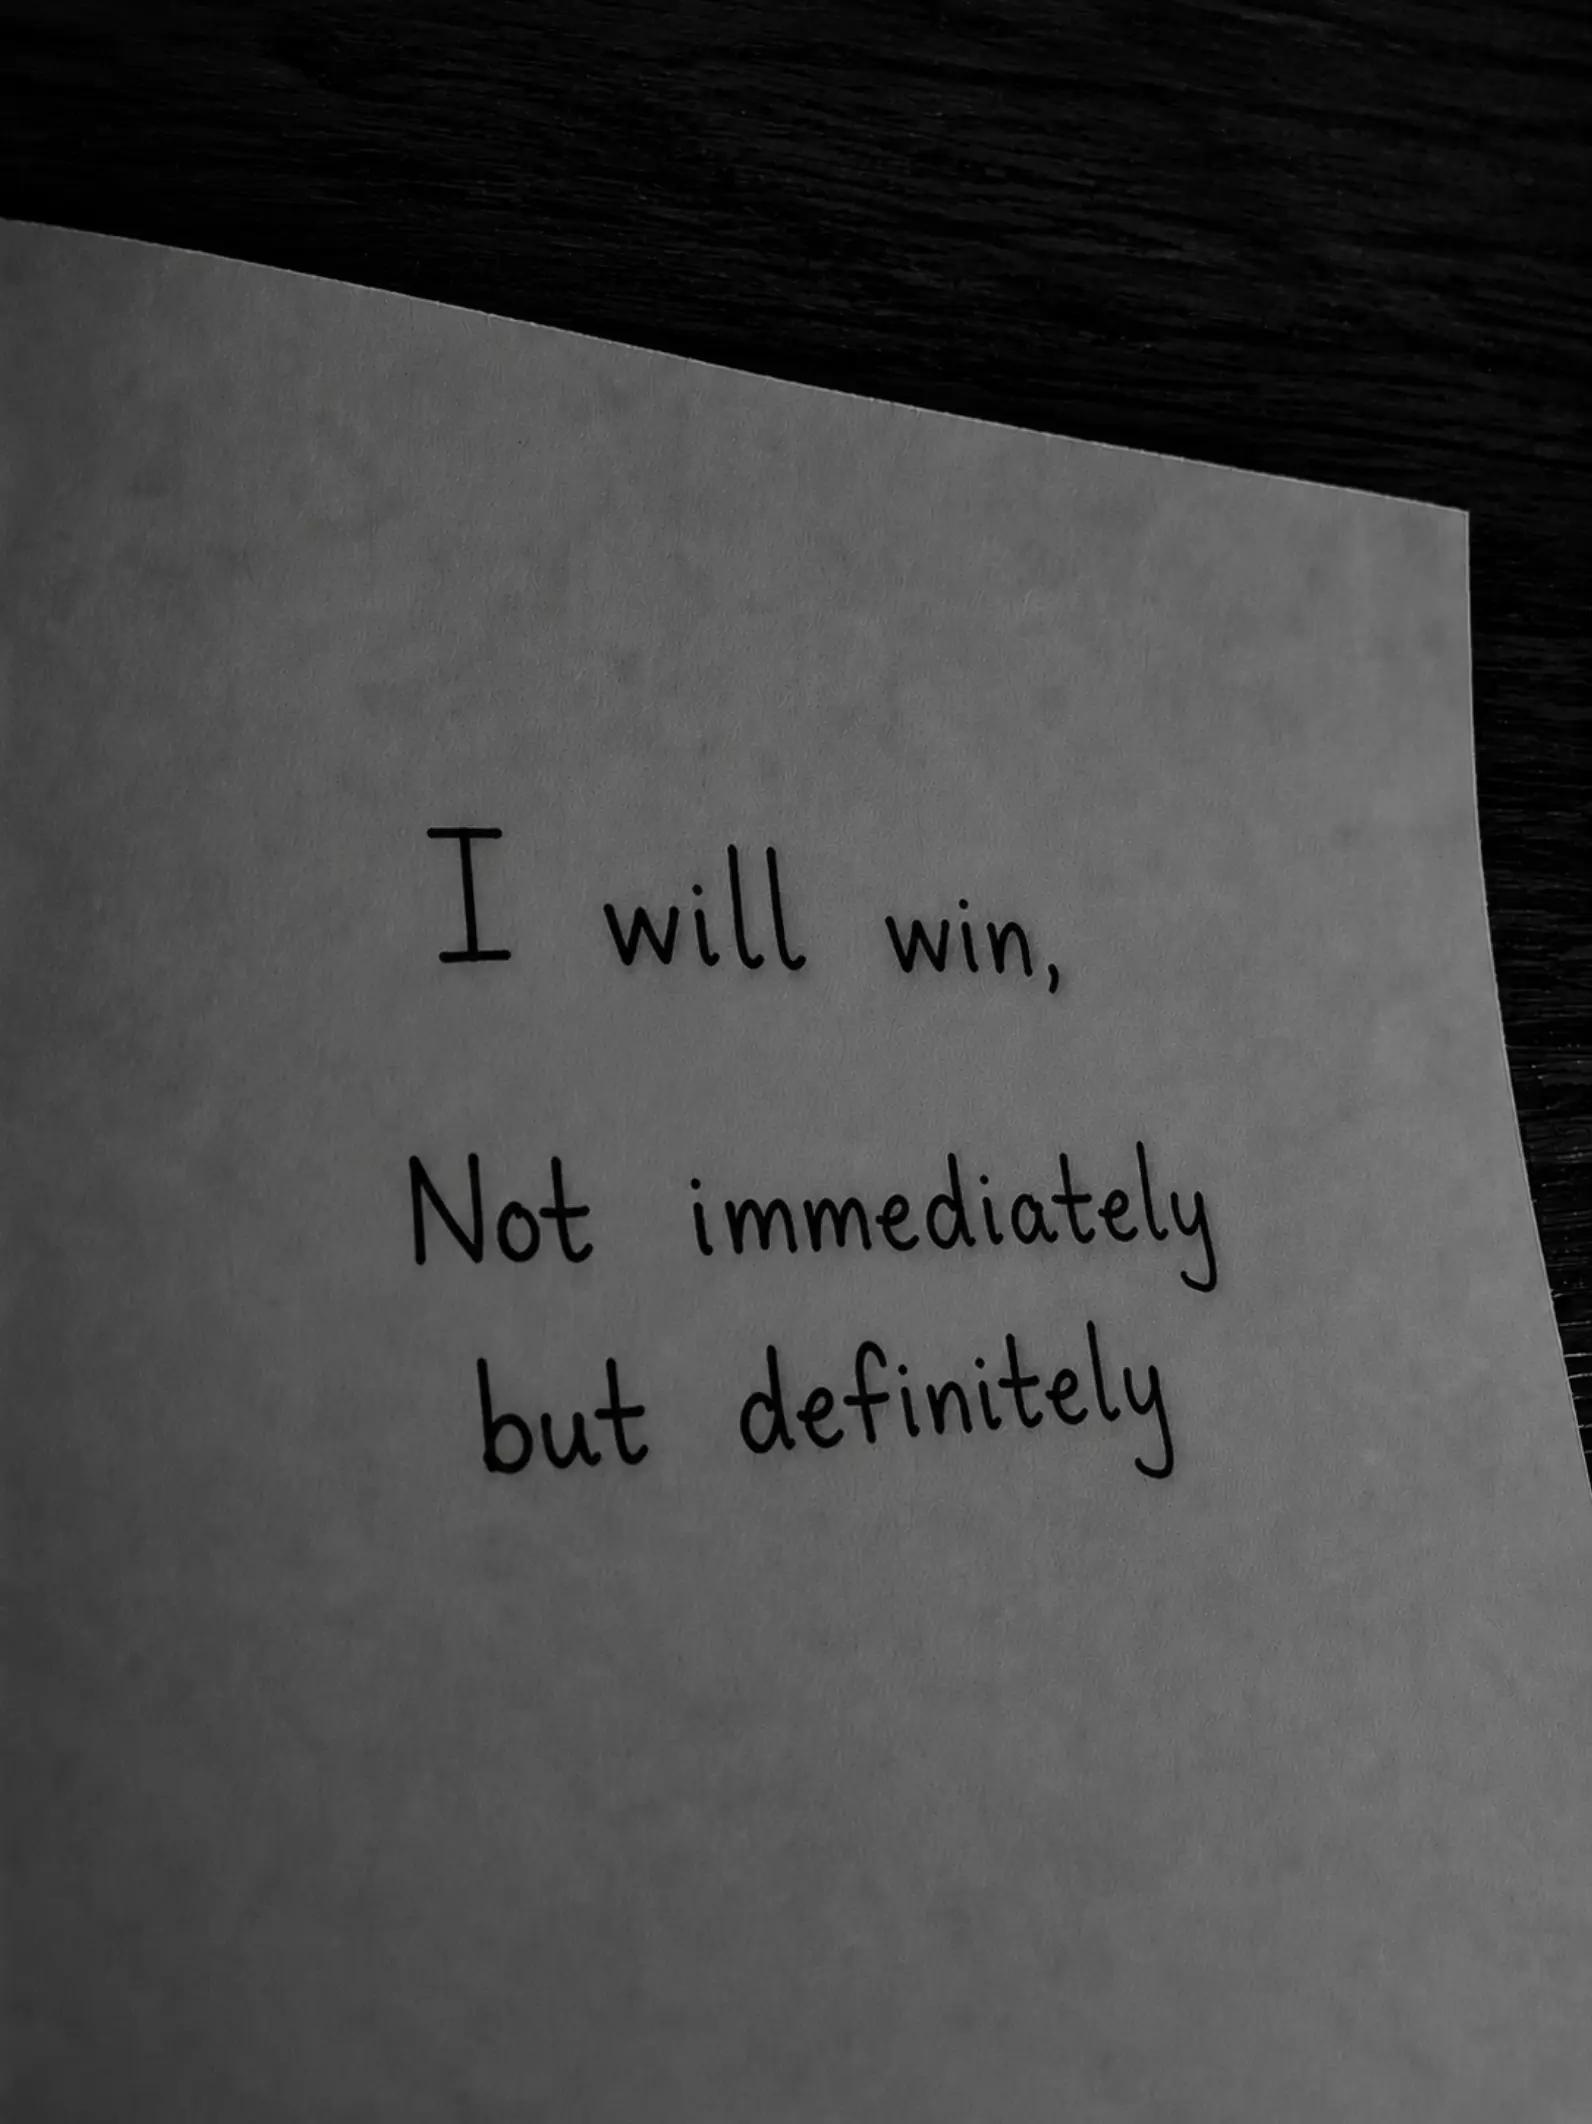 I will win,
Not immediately
but definitely